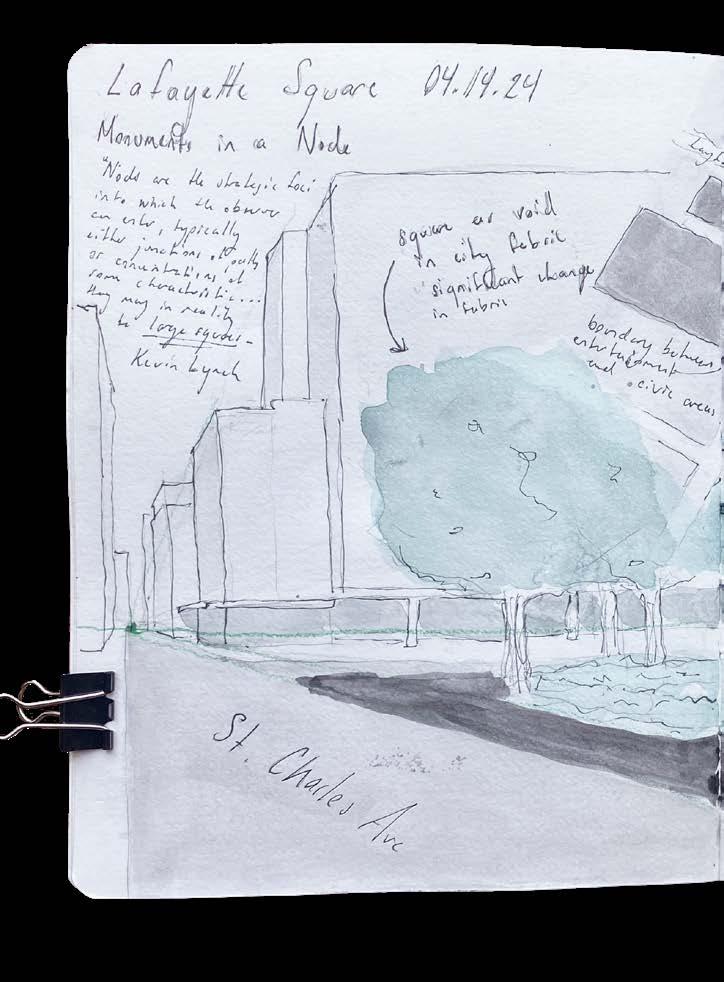 Lafayette Square 04.14.24
Monuments in a Node
"Nodes are the strategic foci
into which the observer
can enter, typically
either junctions of paths
or concentrations of
some characteristic...
they may in reality
be large squares-
Kevin Lynch
square as void
in city fabric
"significant change
in fabric
boundary between
entertainment
and civic areas
St. Charles Ave